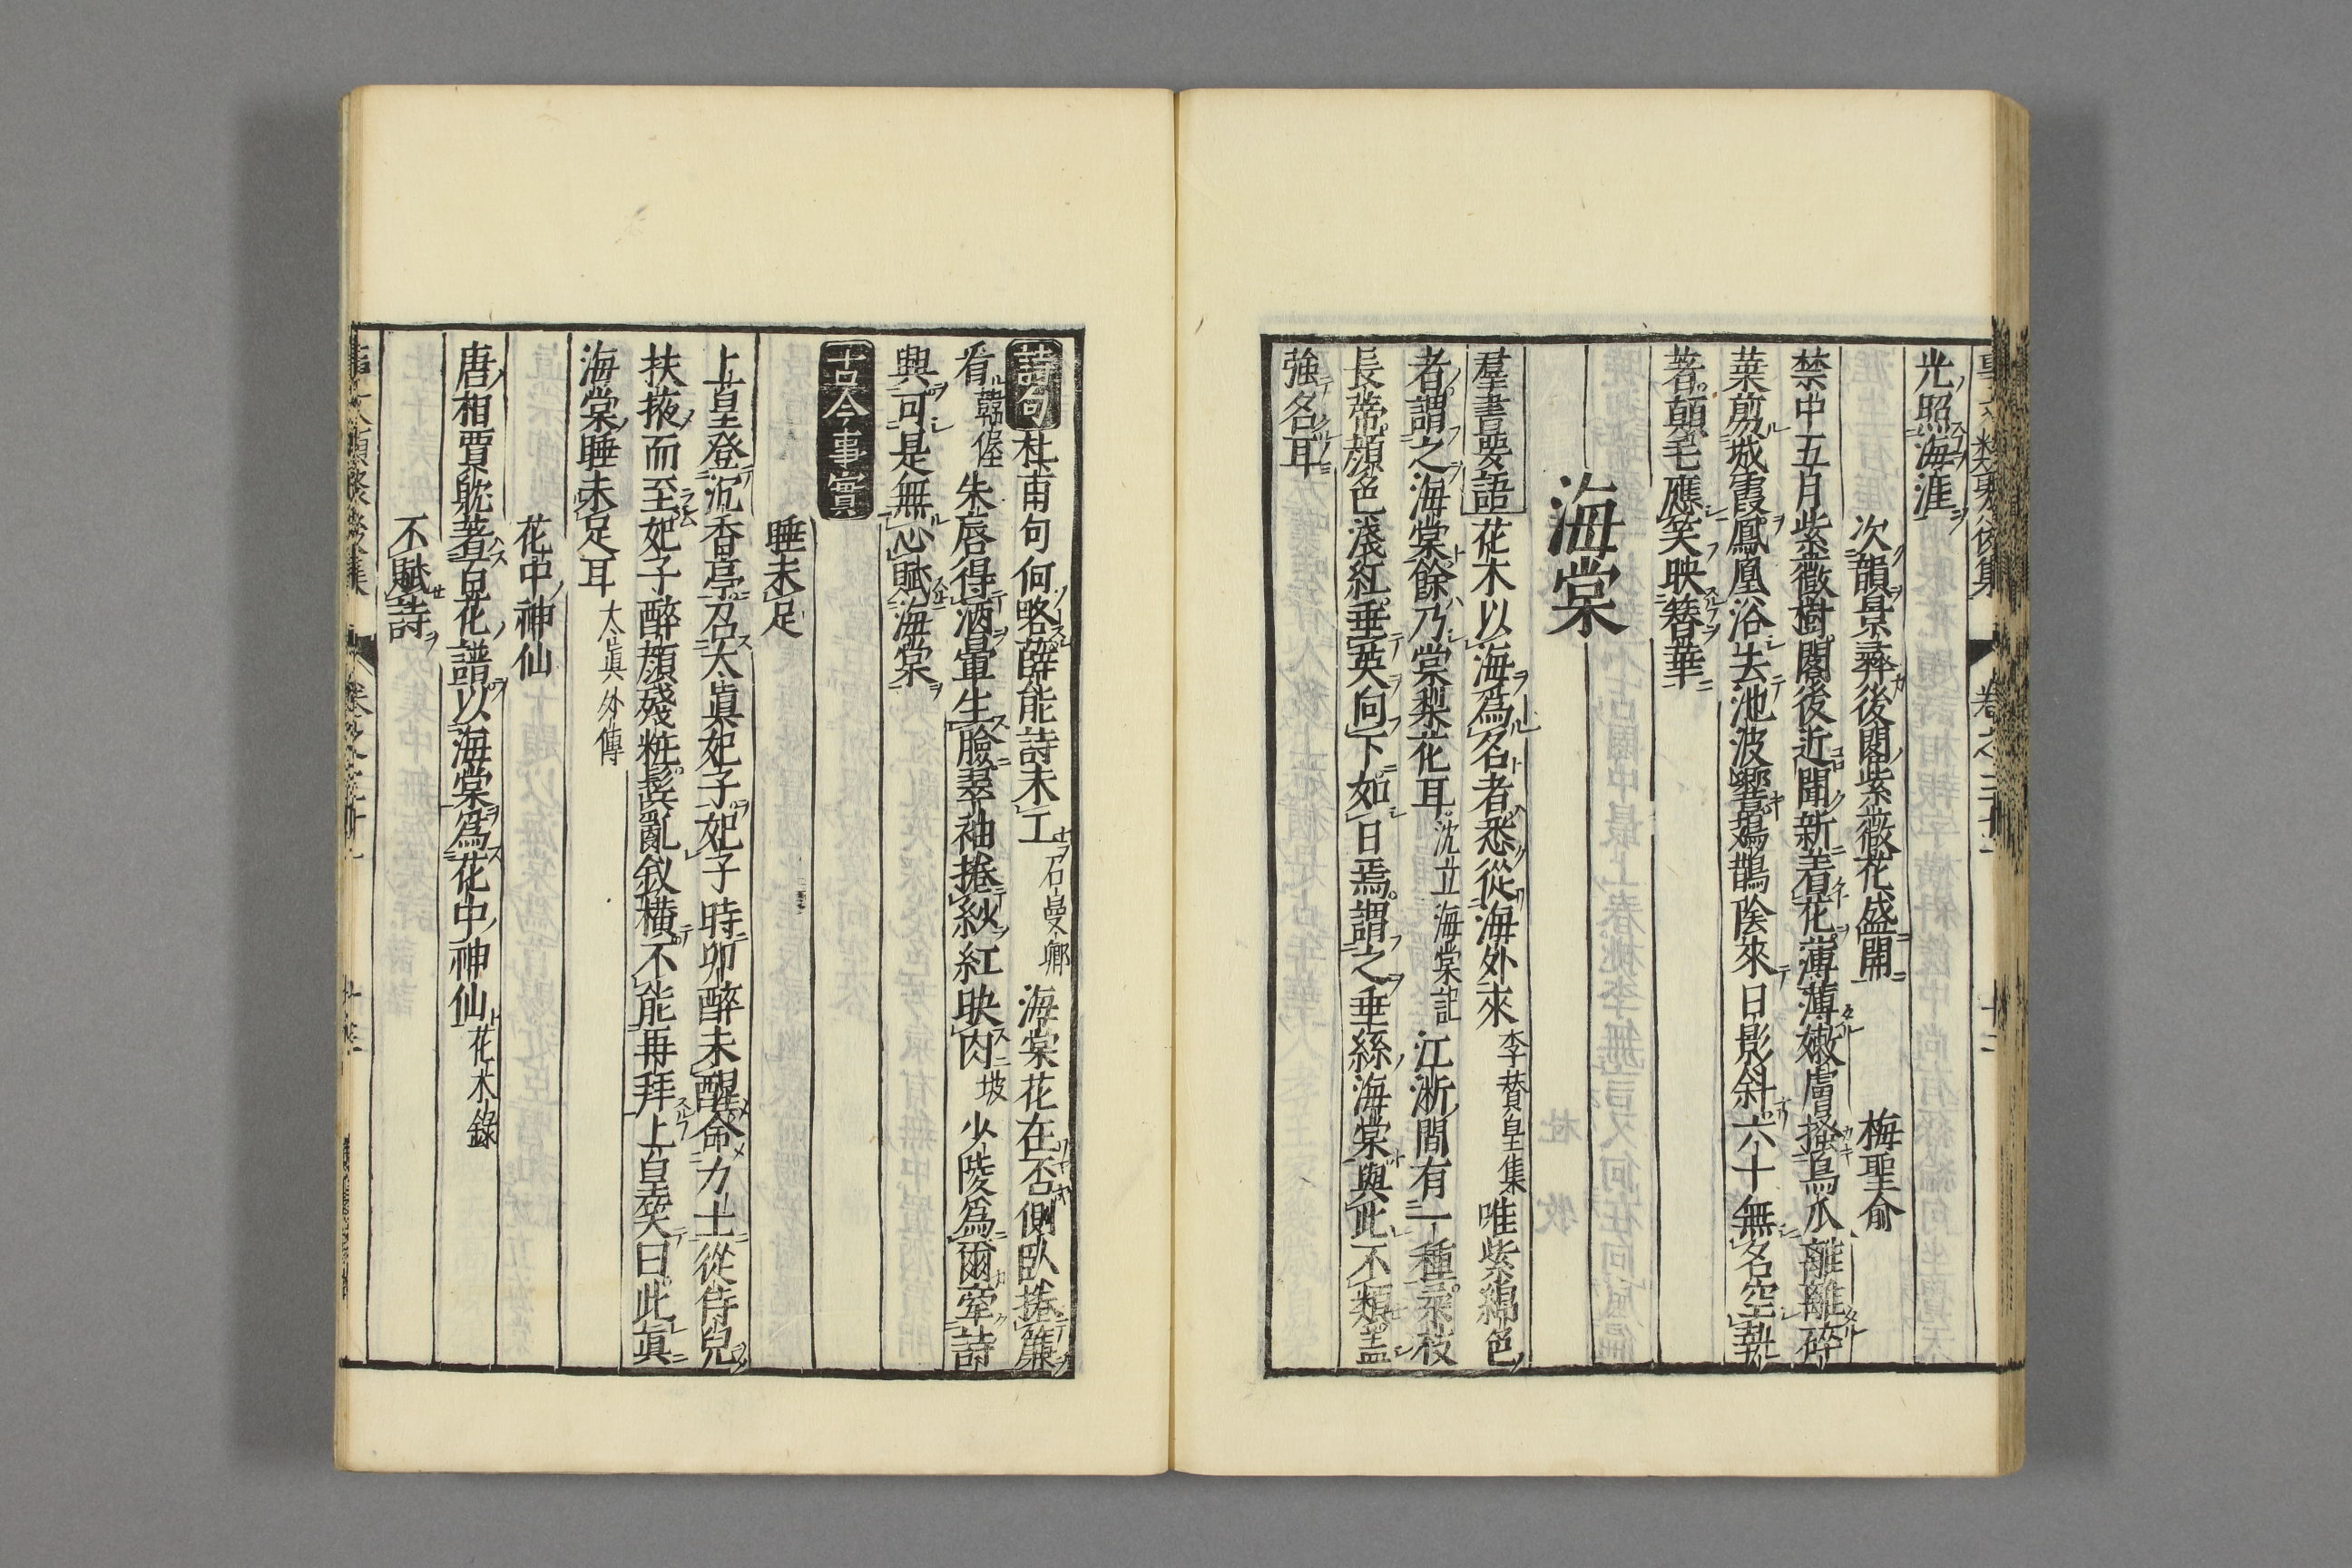 光照海涯
次韻景彝後閣紫薇花盛開 梅聖俞
禁中五月紫薇樹閣後近聞新著花薄薄嫩膚搔鳥爪離離碎
葉剪城霞鳳凰浴去池波響鳷鵲陰來日影斜六十無名空執
著顛毛應笑映簪華
海棠
羣書要語 花木以海爲名者悉從海外來 李贊皇集 唯紫綿色
者謂之海棠餘乃棠梨花耳 沈立海棠記 江淅間有一種柔枝
長蔕顔色淺紅垂英向下如日蔫謂之垂絲海棠與此不類盖
強名耳
詩句 杜甫句何略薛能詩未工 石曼卿 海棠花在否側臥捲簾
看 韓偓 朱唇得酒暈生臉翠袖捲紗紅映肉 坡 少陵爲爾牽詩
興可是無心賦海棠
古今事實
睡未足
上皇登沉香亭召太真妃子妃子時卯醉未醒命力士從侍兒
扶掖而至妃子醉顔殘粧鬢亂釵橫不能再拜上皇笑曰此真
海棠睡未足耳 太真外傳
花中神仙
唐相賈耽著百花譜以海棠爲花中神仙 花木錄
不賦詩